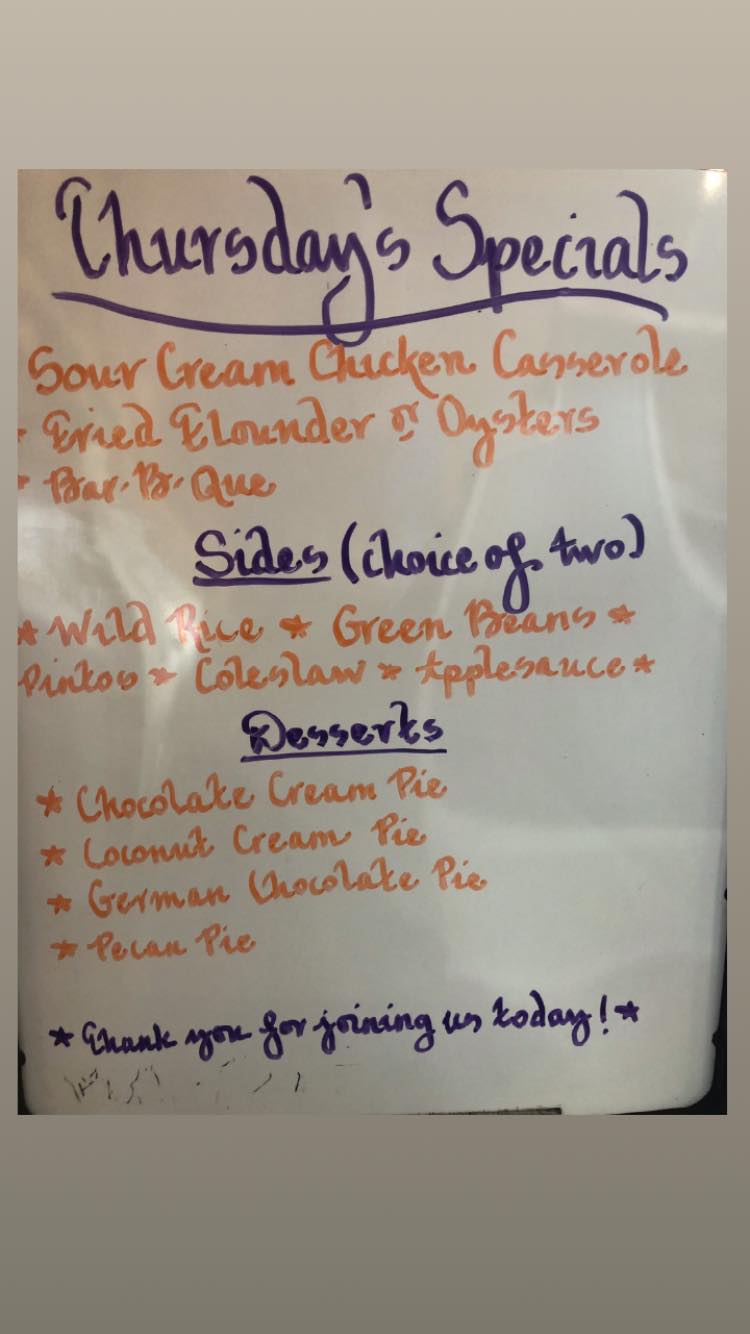 Thursday's Specials
Sour Cream Chicken Casserole
- Fried Flounder or Oysters
* Bar-B-Que
Sides (choice of two)
* Wild Rice * Green Beans *
Pintos * Coleslaw * Applesauce *
Desserts
* Chocolate Cream Pie
* Coconut Cream Pie
* German Chocolate Pie
* Pecan Pie
* Thank you for joining us today! *